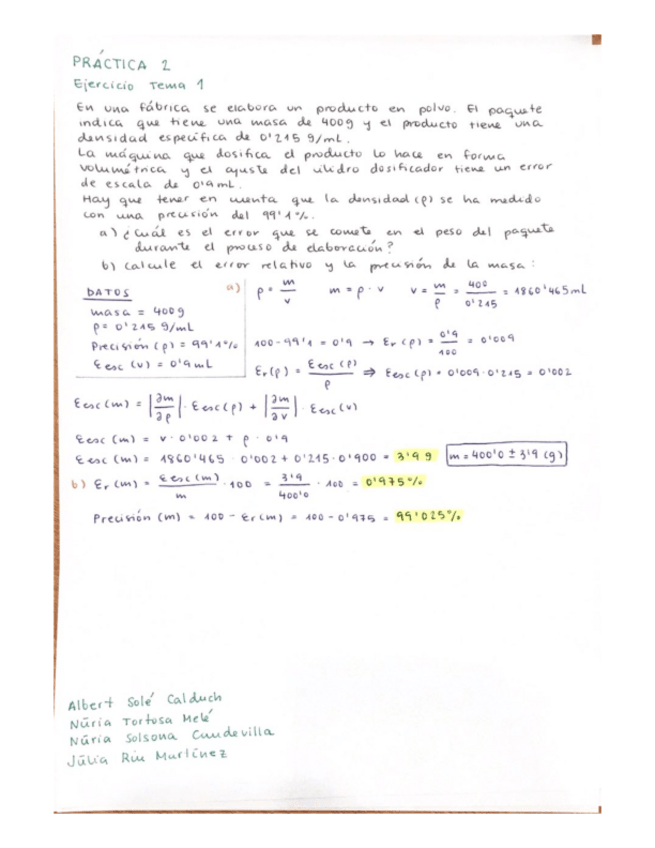 PRÁCTICA 2
Ejercicio Tema 1
En una fábrica se elabora un producto en polvo. El paquete
indica que tiene una masa de 400g y el producto tiene una
densidad específica de 0'215 g/mL.
La máquina que dosifica el producto lo hace en forma
volumétrica y el ajuste del cilidro dosificador tiene un error
de escala de 0'9mL.
Hay que tener en cuenta que la densidad (ρ) se ha medido
con una precisión del 99'1%.
a) ¿Cuál es el error que se comete en el peso del paquete
durante el proceso de elaboración?
b) Calcule el error relativo y la precisión de la masa:
DATOS
masa = 400g
ρ = 0'215 g/mL
Precisión (ρ) = 99'1%
Eesc (v) = 0'9mL
a) ρ = m/v m = ρ · v v = m/ρ = 400/0'215 = 1860'465mL
100-99'1 = 0'9 → Er (ρ) = 0'9/100 = 0'009
Er(ρ) = Eesc (ρ)/ρ ⇒ Eesc(ρ) = 0'009·0'215 = 0'002
Eesc (m) = |∂m/∂ρ| · Eesc(ρ) + |∂m/∂v| · Eesc(v)
Eesc (m) = v · 0'002 + ρ · 0'9
Eesc (m) = 1860'465 · 0'002 + 0'215 · 0'900 = 3'9 g m = 400'0 ± 3'9 (g)
b) Er (m) = Eesc(m)/m · 100 = 3'9/400'0 · 100 = 0'975%
Precisión (m) = 100 - Er(m) = 100 - 0'975 = 99'025%
Albert Solé Calduch
Núria Tortosa Melé
Núria Solsona Cundevilla
Júlia Riu Martínez